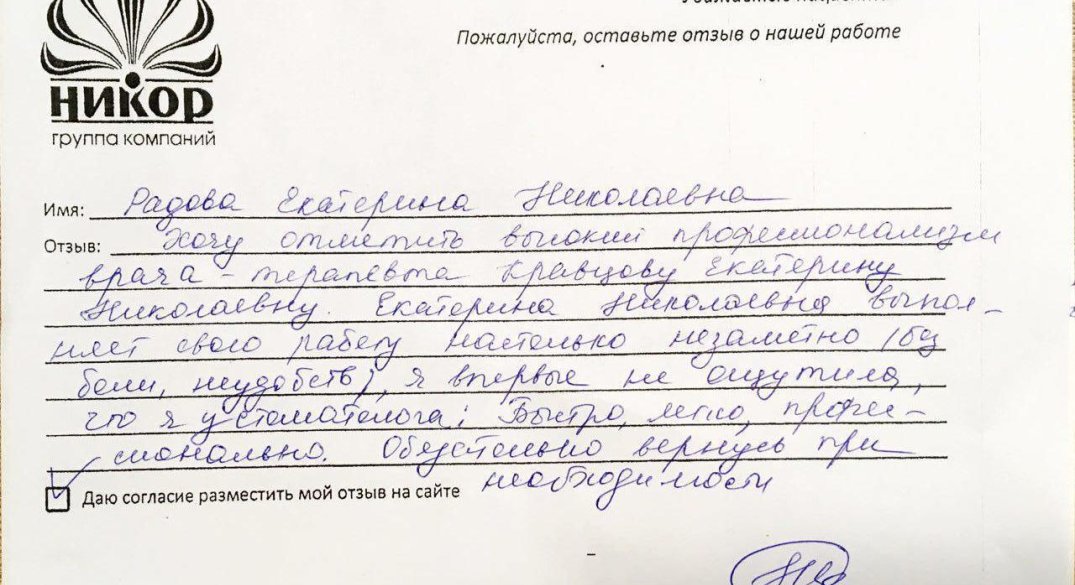 Пожалуйста, оставьте отзыв о нашей работе
НИКОР
группа компаний
Имя: Радова Екатерина Николаевна
Отзыв: Хочу отметить высокий профессионализм
врача - терапевта Кравцову Екатерину
Николаевну. Екатерина Николаевна выпол-
няет свою работу настолько незаметно (без
боли, неудобств), я впервые не ощутила,
что я у стоматолога! Быстро, легко, профес-
сионально. Обязательно вернусь при
необходимости
Даю согласие разместить мой отзыв на сайте